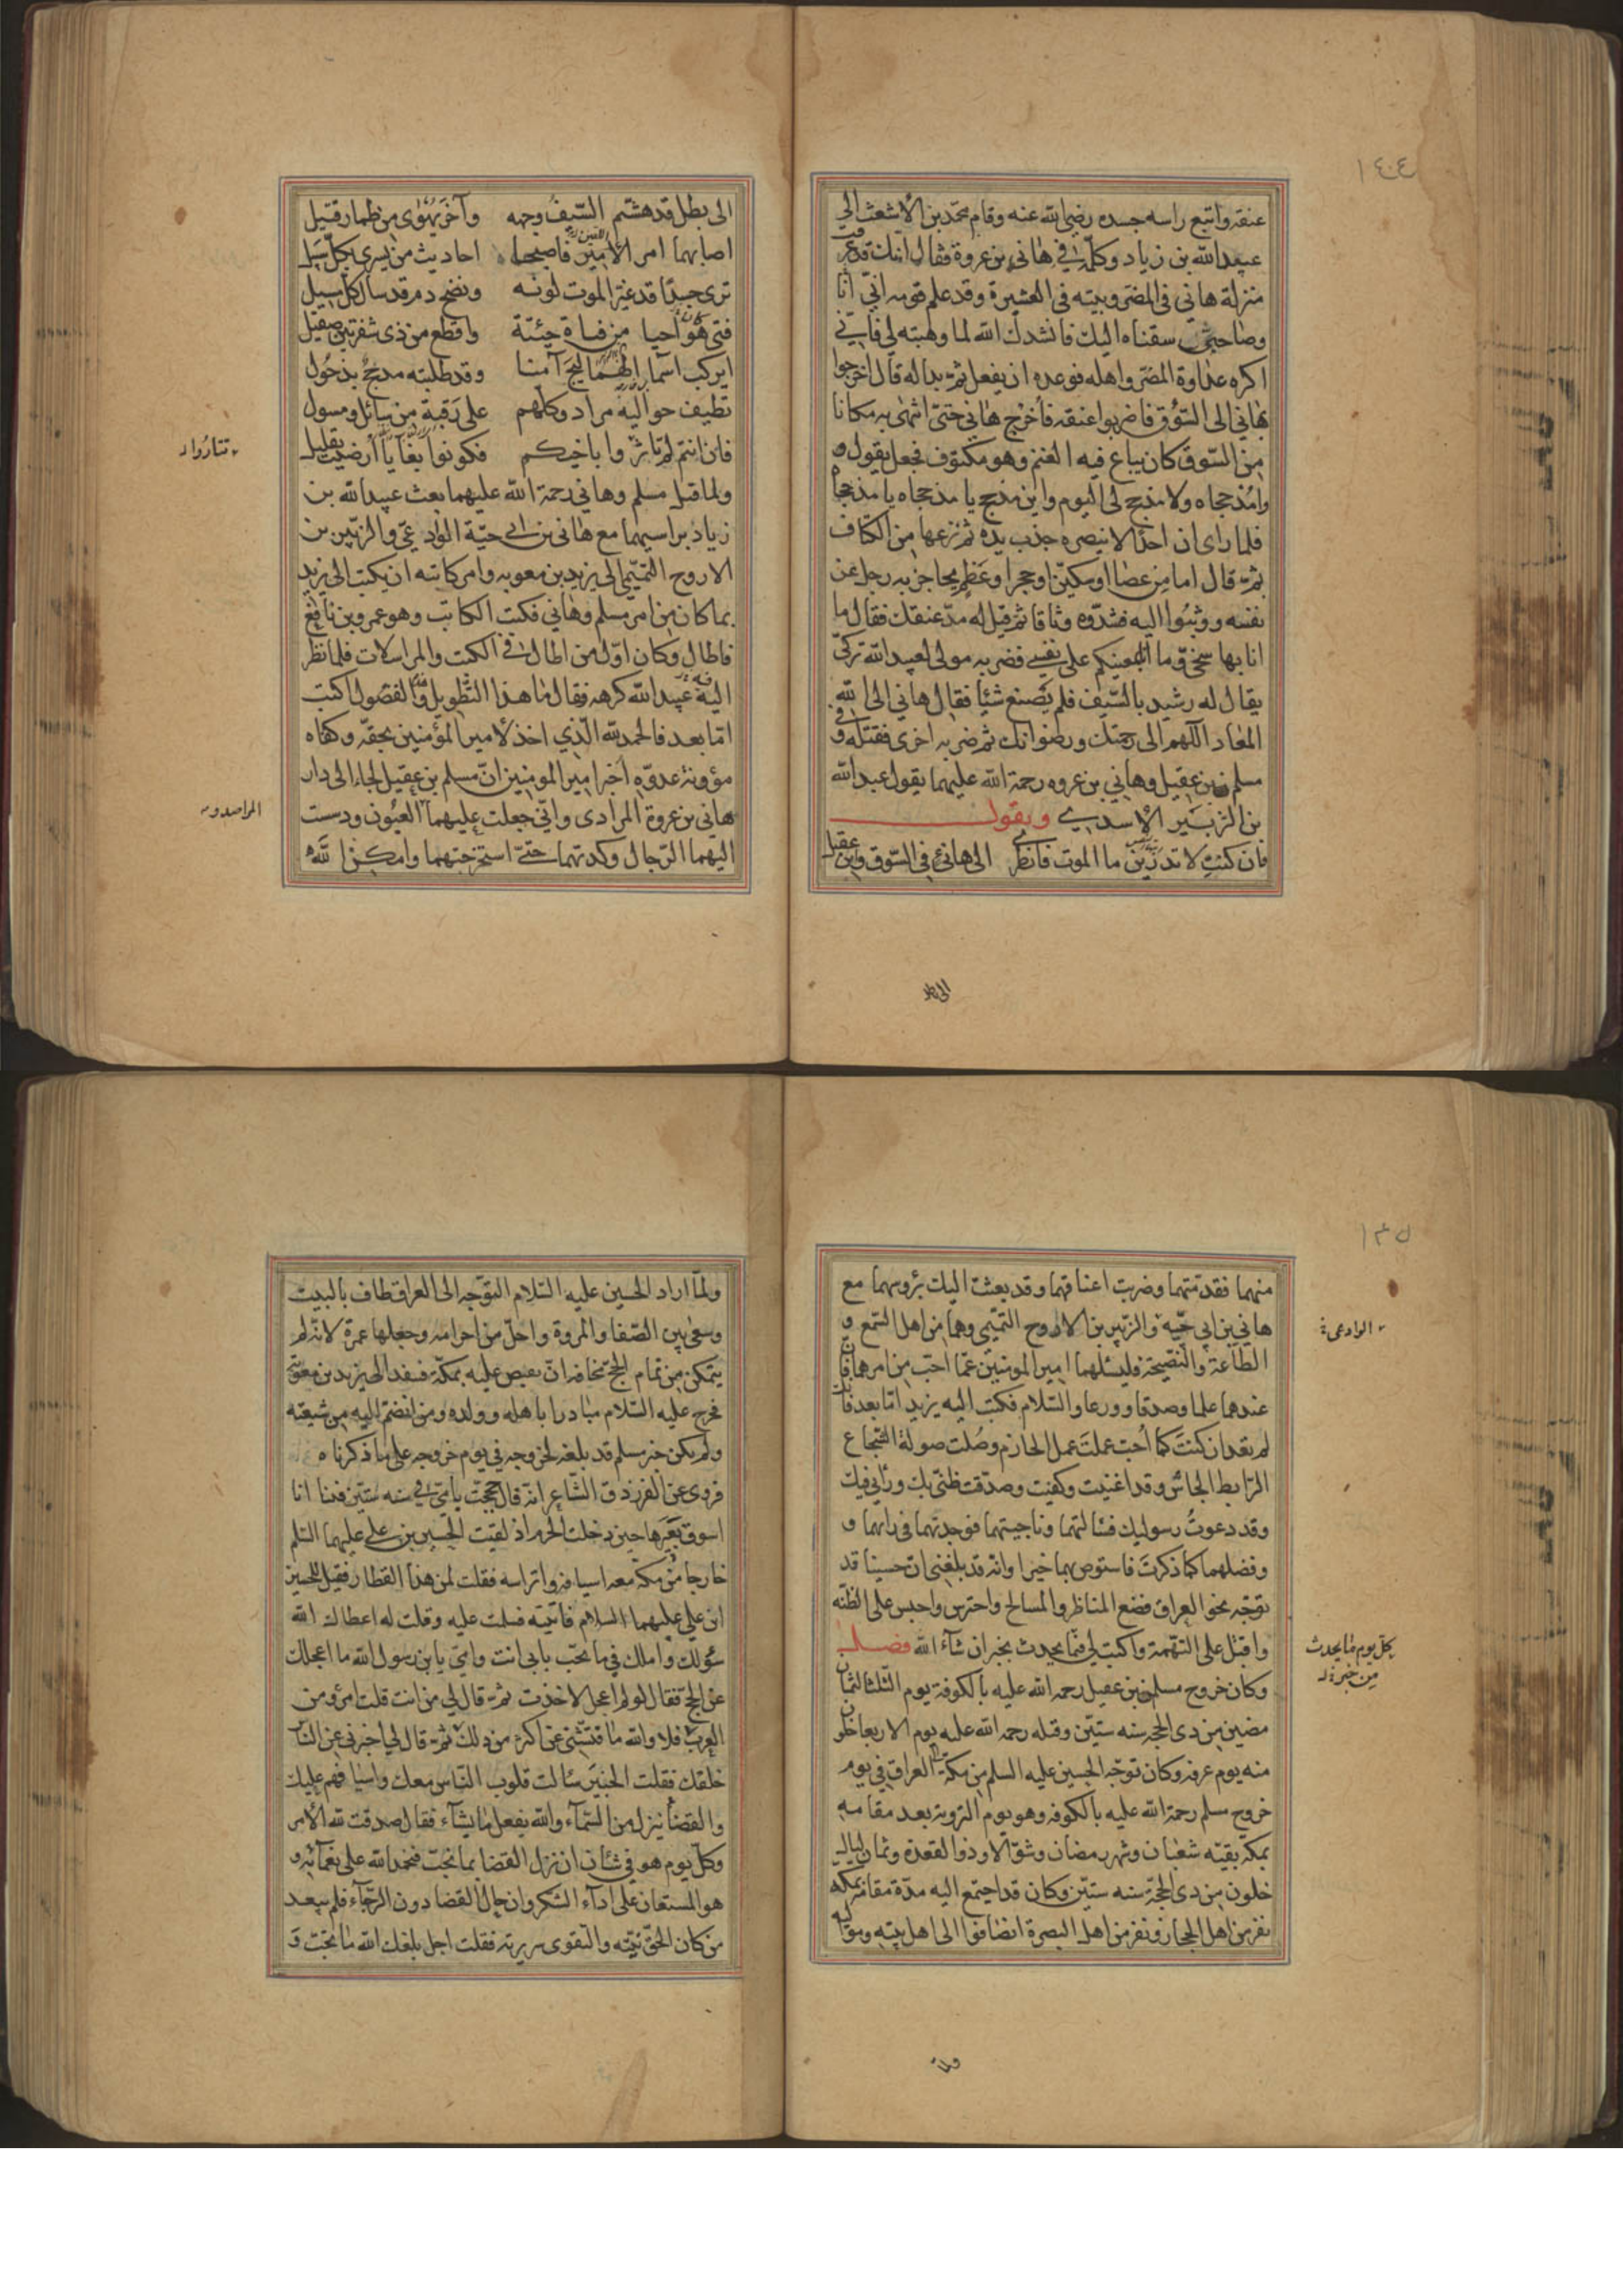 ١٤٠٤
عنقه واتبع راسه جسده رضى الله عنه وقام محمد بن الاشعث الى
عبيدالله بن زياد وكلّمه فى هانى بن عروة فقال انك قد عرفت
منزلة هاني فى المصر وبيته فى العشيرة وقد علم قومه انّي انا
وصاحبىّ سقناه اليك فانشدك الله لما وهبته لي فانّي
اكره عداوة المصر واهله فوعده ان يفعل ثم بدا له قال اخرجوا
بهاني الى السّوق فاضربوا عنقه فاُخرج هاني حتىّ انتهى به مكانا
من السّوق كان يباع فيه الغنم وهو مكتوف فجعل يقول
وامذحجاه ولا مذحج لى اليوم واين مذحج يا مذحجاه يا مذحجا
فلما راى ان احدًا لا ينصره جذب يده ثم نزعها من الكتاف
ثم قال اما من عصا او سكين او حجر او عظم يحاجز به رجل عن
نفسه ووثبوا اليه فشدّوه وثاقا ثم قيل له مدّ عنقك فقال ما
انا بها سخيّ وما انا بمعينكم على نفسي فضربه مولى لعبيد الله تركيّ
يقال له رشيد بالسّيف فلم يصنع شيًا فقال هاني الى الله
المعاد اللهم الى رحمتك ورضوانك ثم ضربه اخرى فقتله وفى
مسلم بن عقيل وهاني بن عروه رحمة الله عليهما يقول عبد الله
بن الزبير الاسدي ويقول
فان كنت لا تدرين ما الموت فانظرى الى هانئ فى السّوق وابن عقيل
الى بطل
الى بطل قد هشّم السّيف وجهه وآخر يهوى من طمار قتيل
اصابهما امر الامير فاصبحا احاديث من يسرى بكلّ سبيل
ترى جسدًا قد غيّر الموت لونه ونضح دم قد سال كلّ مسيل
فتى هو احيا من فتاة حيّية واقطع من ذى شفرتين صقيل
ايركب اسماء الهماليج آمنا وقد طلبته مذحج بذحول
تطيف حواليه مراد وكلّهم على رقبة من سائل ومسول
فان انتم لم تاثروا باخيكم فكونوا بغايا ارضيت بقليل
تثاروا
ولما قتل مسلم وهاني رحمة الله عليهما بعث عبيدالله بن
زياد براسيهما مع هانى بن ابي حيّة الوادعيّ والزبير بن
الاروح التميمى الى يزيد بن معويه وامر كاتبه ان يكتب الى يزيد
بما كان من امر مسلم وهاني فكتب الكاتب وهو عمرو بن نافع
فاطال وكان اوّل من اطال فى الكتب والمراسلات فلما نظر
فيه عبيد الله كرهه فقال ما هذا التطويل والفضول اكتب
امّا بعد فالحمد لله الّذي اخذ لامير المؤمنين بحقّه وكفاه
مؤونة عدوّه اخبر امير المومنين انّ مسلم بن عقيل لجاء الى دار
هانى بن عروة المرادى وانّي جعلت عليهما العيون ودست
المراصد
اليهما الرّجال وكدتهما حتىّ استخرجتهما وامكن الله
١٣٥
منهما فقدّمتهما وضربت اعناقهما وقد بعثت اليك برؤسهما مع
هاني بن ابي حيّة والزبير بن الاروح التميّمي وهما من اهل السّمع و
الوادعى
الطاعة والنصيحة فليسئلهما امير المومنين عمّا احبّ من امرهما فان
عندهما علما وصدقا وورعا والسّلام فكتب اليه يزيد امّا بعد فانك
لم تعد ان كنت كما اُحبّ عملت عمل الحازم وصُلت صولة الشجاع
الرّابط الجاش وقد اغنيت وكفيت وصدّقت ظنّى بك ورأيي فيك
وقد دعوتُ رسوليك فسألتهما وناجيتهما فوجدتهما فى رايهما و
وفضلهما كما ذكرت فاستوص بهما خيرا وانه قد بلغنى ان حسينا قد
توجّه نحو العراق فضع المناظر والمسالح واحترس واحبس على الظنّه
واقتل على التّهمة واكتب لي فيما يحدث بخبر ان شاء الله فصل
كلّ يوم ما يحدث
من خبر
وكان خروج مسلم بن عقيل رحمه الله عليه بالكوفة يوم الثلثا لثمان
مضين من ذى الحجه سنه ستّين وقتله رحمه الله عليه يوم الاربعا خلون
منه يوم عرفه وكان توجّه الحسين عليه السلم من مكّة الى العراق في يوم
خروج مسلم رحمة الله عليه بالكوفه وهو يوم التروية بعد مقامه
بمكّة بقيّه شعبان وشهر رمضان وشوّالا وذو القعدة وثمان ليال
خلون من ذى الحجّة سنه ستّين وكان قد اجتمع اليه مدّة مقامه بمكه
نفر من اهل الحجاز ونفر من اهل البصرة انضافوا الى اهل بيته ومواليه
ولمّا
ولمّا اراد الحسين عليه السّلام التوّجه الى العراق طاف بالبيت
وسعى بين الصّفا والمروة واحلّ من احرامه وجعلها عمرة لانّه لم
يتمكن من تمام الحجّ مخافه ان يقبض عليه بمكّة فينفد الى يزيد بن معويّة
فخرج عليه السّلام مبادرا باهله وولده ومن انضمّ اليه من شيعته
ولم يكن خبر مسلم قد بلغه لخروجه في يوم خروجه على ما ذكرناه
فروى عن الفرزدق الشّاعر انّه قال حججت باُمّى في سنه ستّين فبينا انا
اسوق بعيرها حين دخلت الحرم اذ لقيت الحسين بن على عليهما السّلم
خارجا من مكّة معه اسيافه واتراسه فقلت لمن هذا القطار فقيل للحسين
ابن علي عليهما السلام فاتيته فسلّمت عليه وقلت له اعطاك الله
سُولك واملك في ما تحبّ بابى انت وامّي يا بن رسول الله ما اعجلك
عن الحجّ فقال لو لم اعجل لاخذت ثم قال لي من انت قلت امرؤ من
العرب فلا والله ما فتّشنى عن اكثر من ذلك ثم قال لي اخبرنى عن النّاس
خلفك فقلت الخبير سئالت قلوب النّاس معك واسيافهم عليك
والقضاء ينزل من السّماء والله يفعل ما يشاء فقال صدقت لله الامر
وكلّ يوم هو في شان ان نزل القضا بما نحبّ فنحمد الله على نعمائه و
هو المستعان على اداء الشكر وان حال القضا دون الرّجاء فلم يبعد
من كان الحقّ نيّته والتقوى سريرته فقلت اجل بلغك الله ما تحبّ و